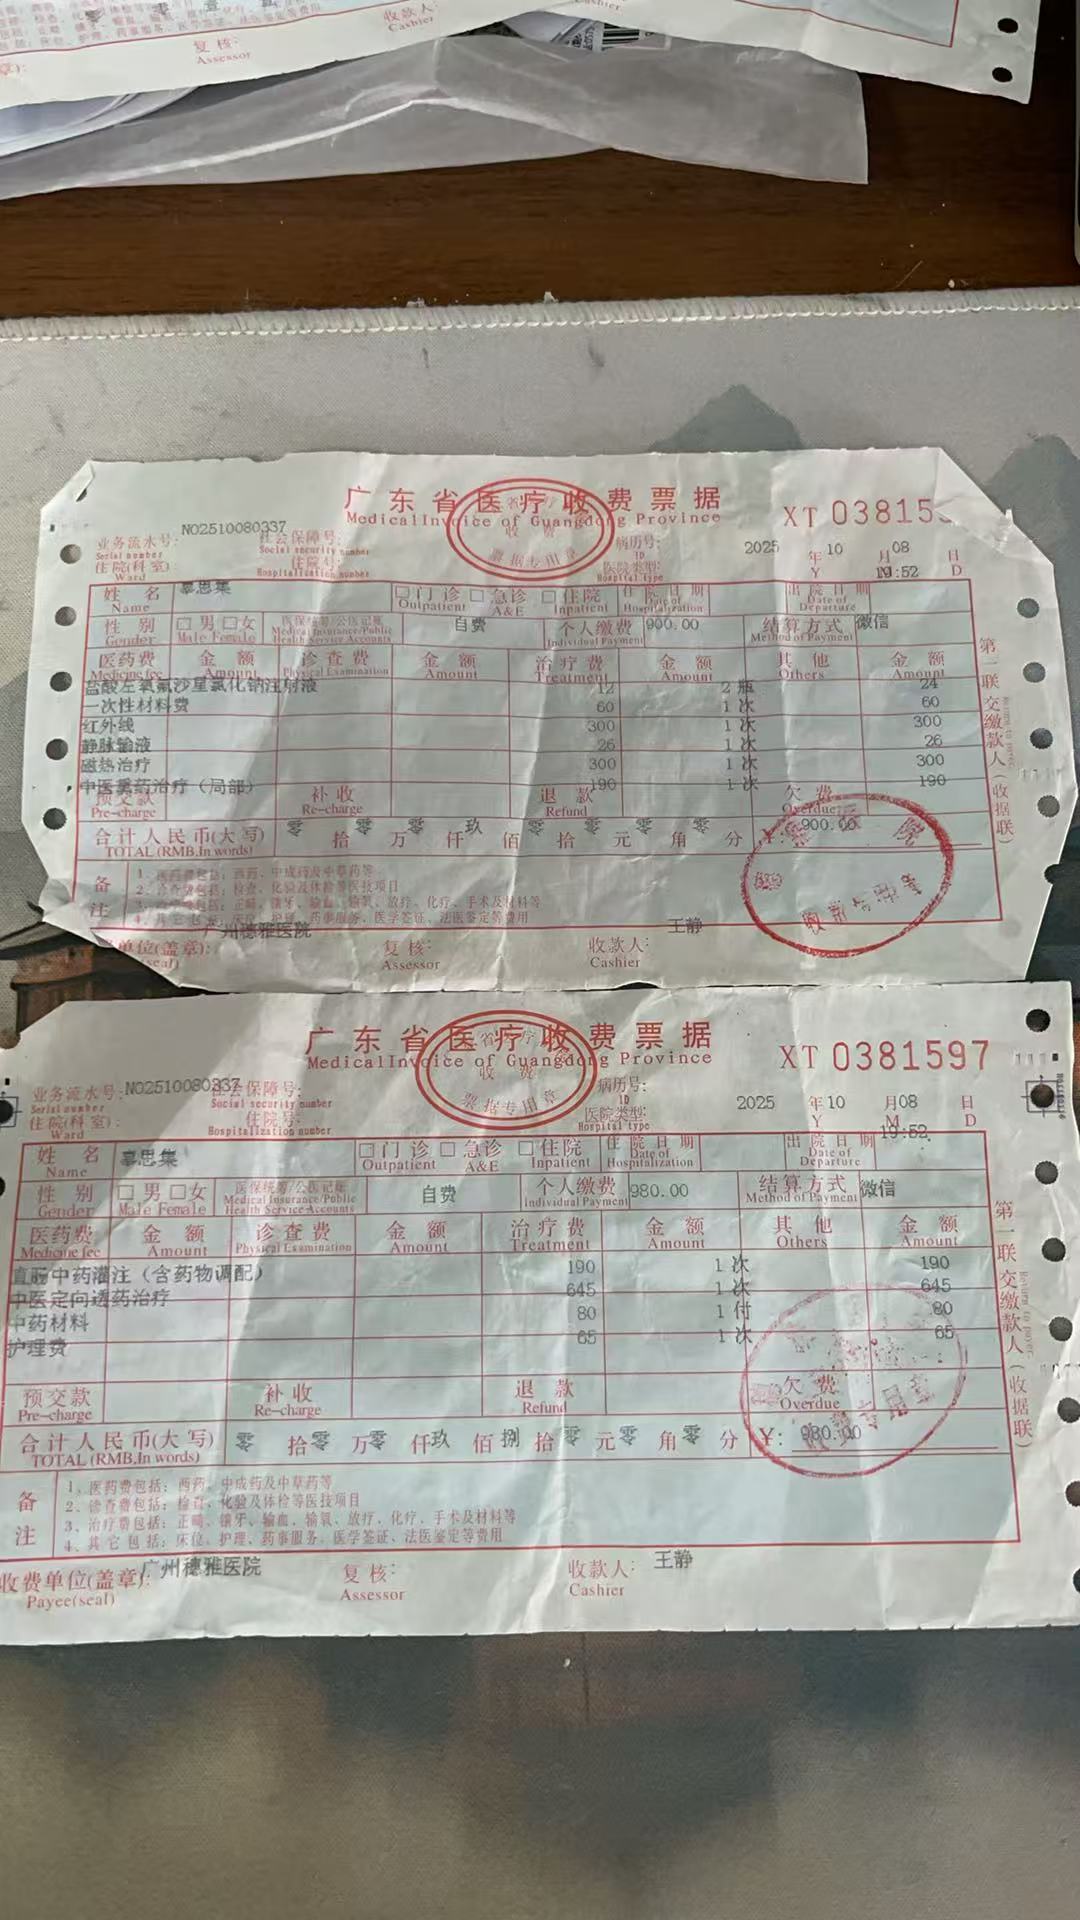 收款人:
Cashier
复核:
Assessor
广东省医疗收费票据
Medical Invoice of Guangdong Province
收 费
票据专用章
XT 038155
业务流水号: NO2510080337 社会保障号: 病历号: 2025 年 10 月 08 日
Serial number Social security number ID Y M D
住院(科室) 住院号: 医院类型: 19:52
Ward Hospitalization number Hospital type
姓 名 辜思集 □门诊 □急诊 □住院 住院日期 出院日期
Name Outpatient A&E Inpatient Date of Hospitalization Date of Departure
性 别 □男 □女 医保统筹/公医记账 自费 个人缴费 900.00 结算方式 微信
Gender Male Female Medical Insurance/Public Health Service Accounts Individual Payment Method of Payment
医药费 金 额 诊查费 金 额 治疗费 金 额 其 他 金 额
Medicine fee Amount Physical Examination Amount Treatment Amount Others Amount
盐酸左氧氟沙星氯化钠注射液 12 2 瓶 24
一次性材料费 60 1 次 60
红外线 300 1 次 300
静脉输液 26 1 次 26
磁热治疗 300 1 次 300
中医熏药治疗（局部） 190 1 次 190
预交款 补 收 退 款 欠 费
Pre-charge Re-charge Refund Overdue
合计人民币(大写) 零 拾 零 万 零 仟 玖 佰 零 拾 零 元 零 角 零 分 ¥: 900.00
TOTAL (RMB,In words)
备注
1、医药费包括：西药、中成药及中草药等
2、诊查费包括：检查、化验及体检等医技项目
3、治疗费包括：正畸、镶牙、输血、输氧、放疗、化疗、手术及材料等
4、其它包括：床位、护理、药事服务、医学签证、法医鉴定等费用
单位(盖章): 广州穗雅医院 复核: 收款人: 王静
seal) Assessor Cashier
第一联 交缴款人（收据联）
广东省医疗收费票据
Medical Invoice of Guangdong Province
收 费
票据专用章
XT 0381597
业务流水号: NO2510080337 社会保障号: 病历号: 2025 年 10 月 08 日
Serial number Social security number ID Y M D
住院(科室): 住院号: 医院类型: 19:52
Ward Hospitalization number Hospital type
姓 名 辜思集 □门诊 □急诊 □住院 住院日期 出院日期
Name Outpatient A&E Inpatient Date of Hospitalization Date of Departure
性 别 □男 □女 医保统筹/公医记账 自费 个人缴费 980.00 结算方式 微信
Gender Male Female Medical Insurance/Public Health Service Accounts Individual Payment Method of Payment
医药费 金 额 诊查费 金 额 治疗费 金 额 其 他 金 额
Medicine fee Amount Physical Examination Amount Treatment Amount Others Amount
直肠中药灌注（含药物调配） 190 1 次 190
中医定向透药治疗 645 1 次 645
中药材料 80 1 付 80
护理费 65 1 次 65
预交款 补 收 退 款 欠 费
Pre-charge Re-charge Refund Overdue
合计人民币(大写) 零 拾 零 万 零 仟 玖 佰 捌 拾 零 元 零 角 零 分 ¥: 980.00
TOTAL (RMB,In words)
备注
1、医药费包括：西药、中成药及中草药等
2、诊查费包括：检查、化验及体检等医技项目
3、治疗费包括：正畸、镶牙、输血、输氧、放疗、化疗、手术及材料等
4、其它包括：床位、护理、药事服务、医学签证、法医鉴定等费用
收费单位(盖章): 广州穗雅医院 复核: 收款人: 王静
Payee(seal) Assessor Cashier
第一联 交缴款人（收据联）